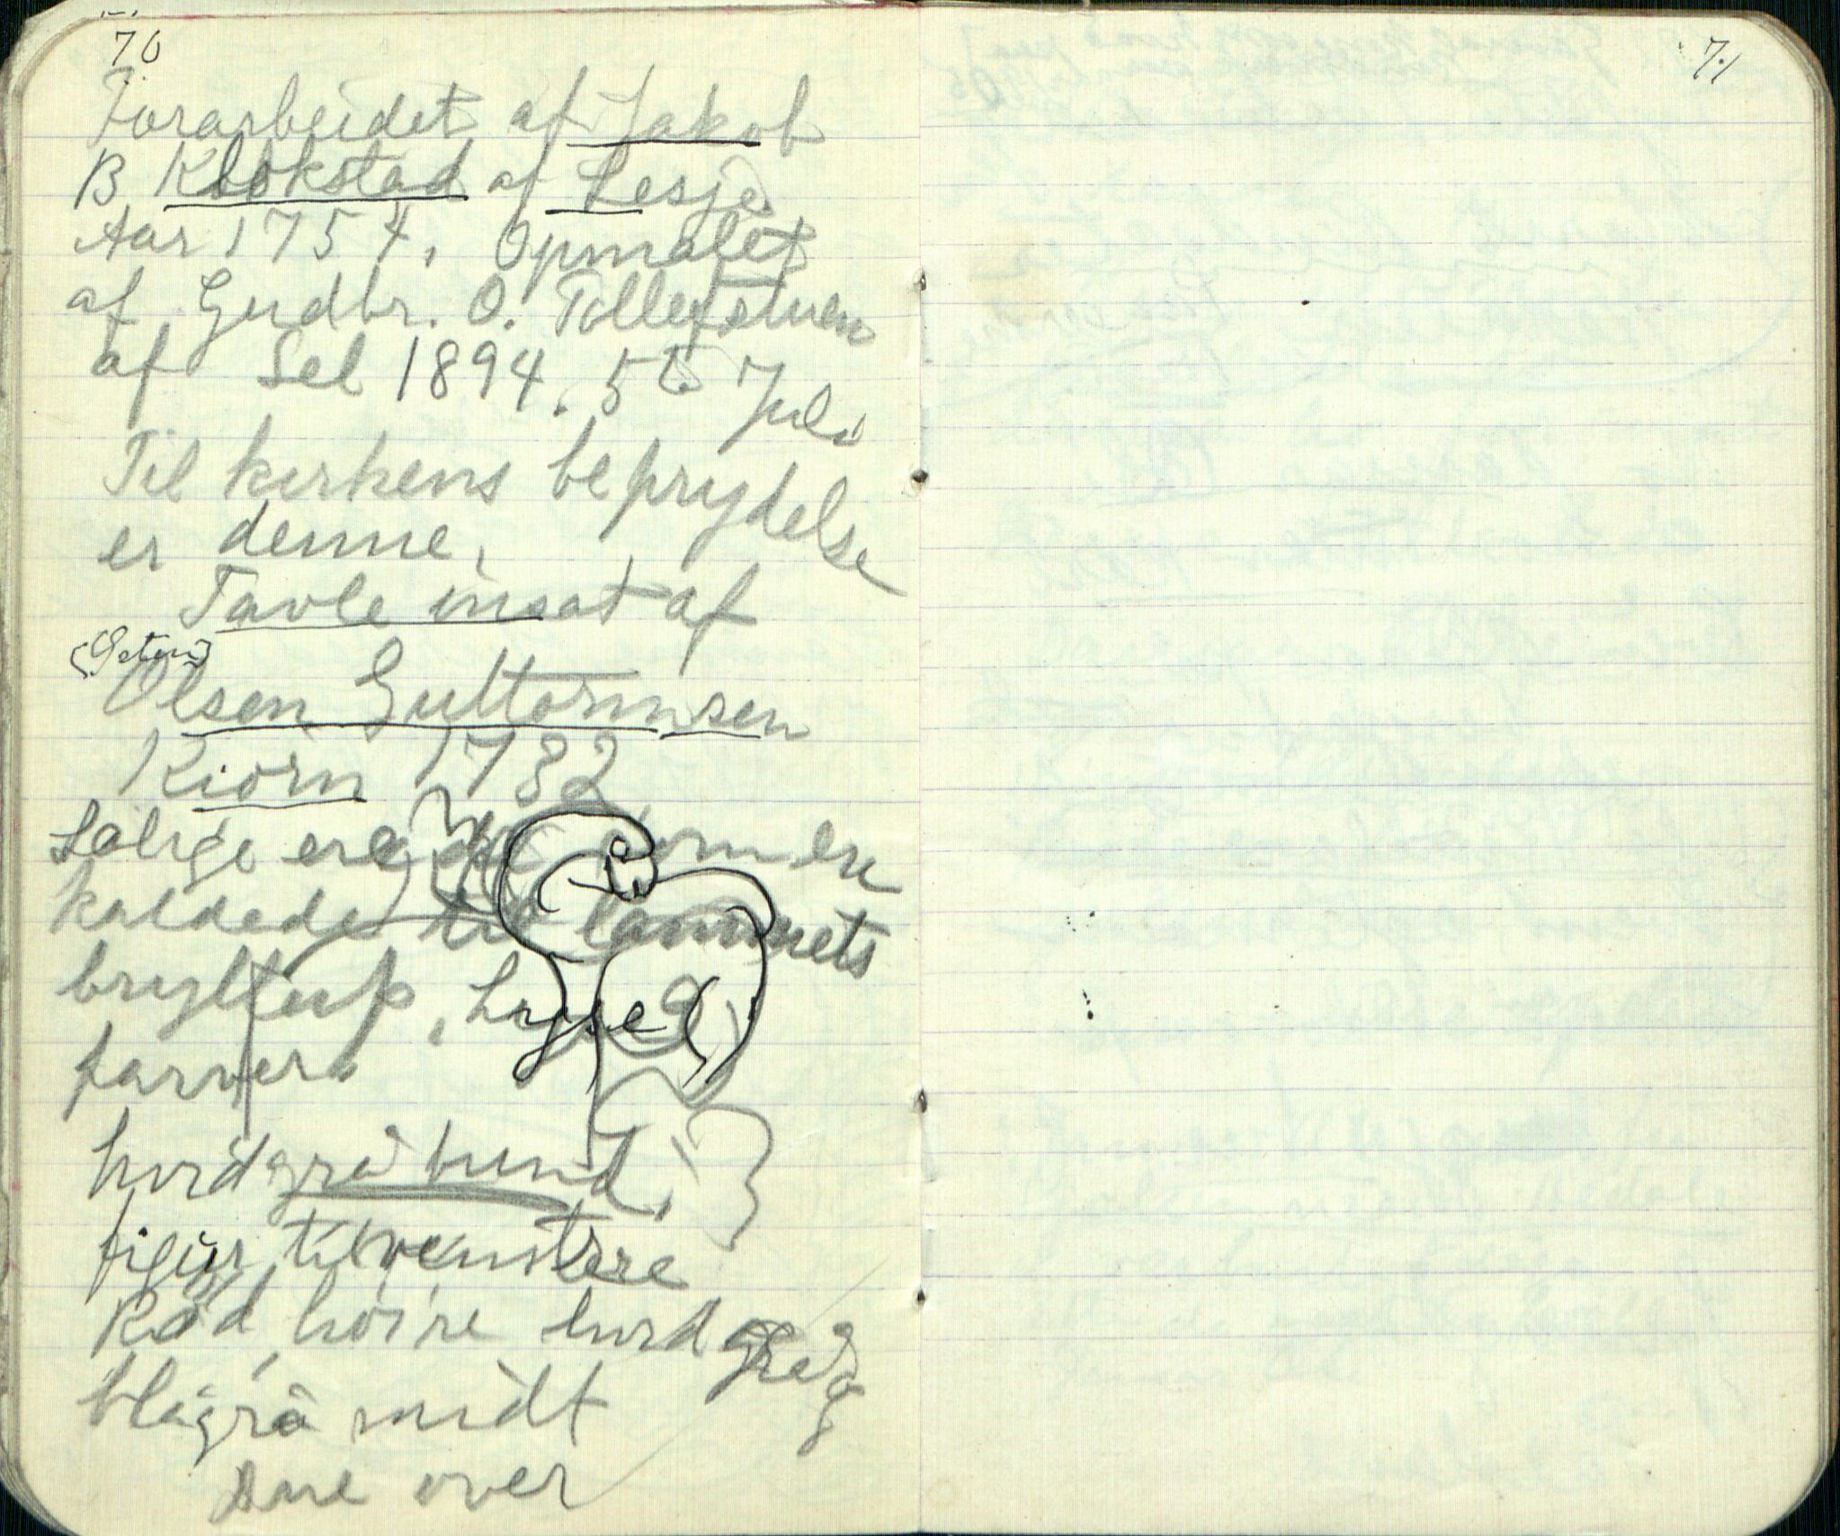 70
Forarbeidet af Jakob
B Klokstad af Lesje
Aar 1754. Opmalet
af Gudbr. O. Tollefstuen
af Sel 1894. 5te Juli
Til kirkens beprydelse
er denne,
Tavle insat af
Olsen Guttormsen
Kiörn 1782
Salige ere de som ere
kaldede til lammets
bryllup, Lyse
farver.
hvidgrå bund,
figur tilvenstre
Rød, höire hvid
blågrå midt
over
71